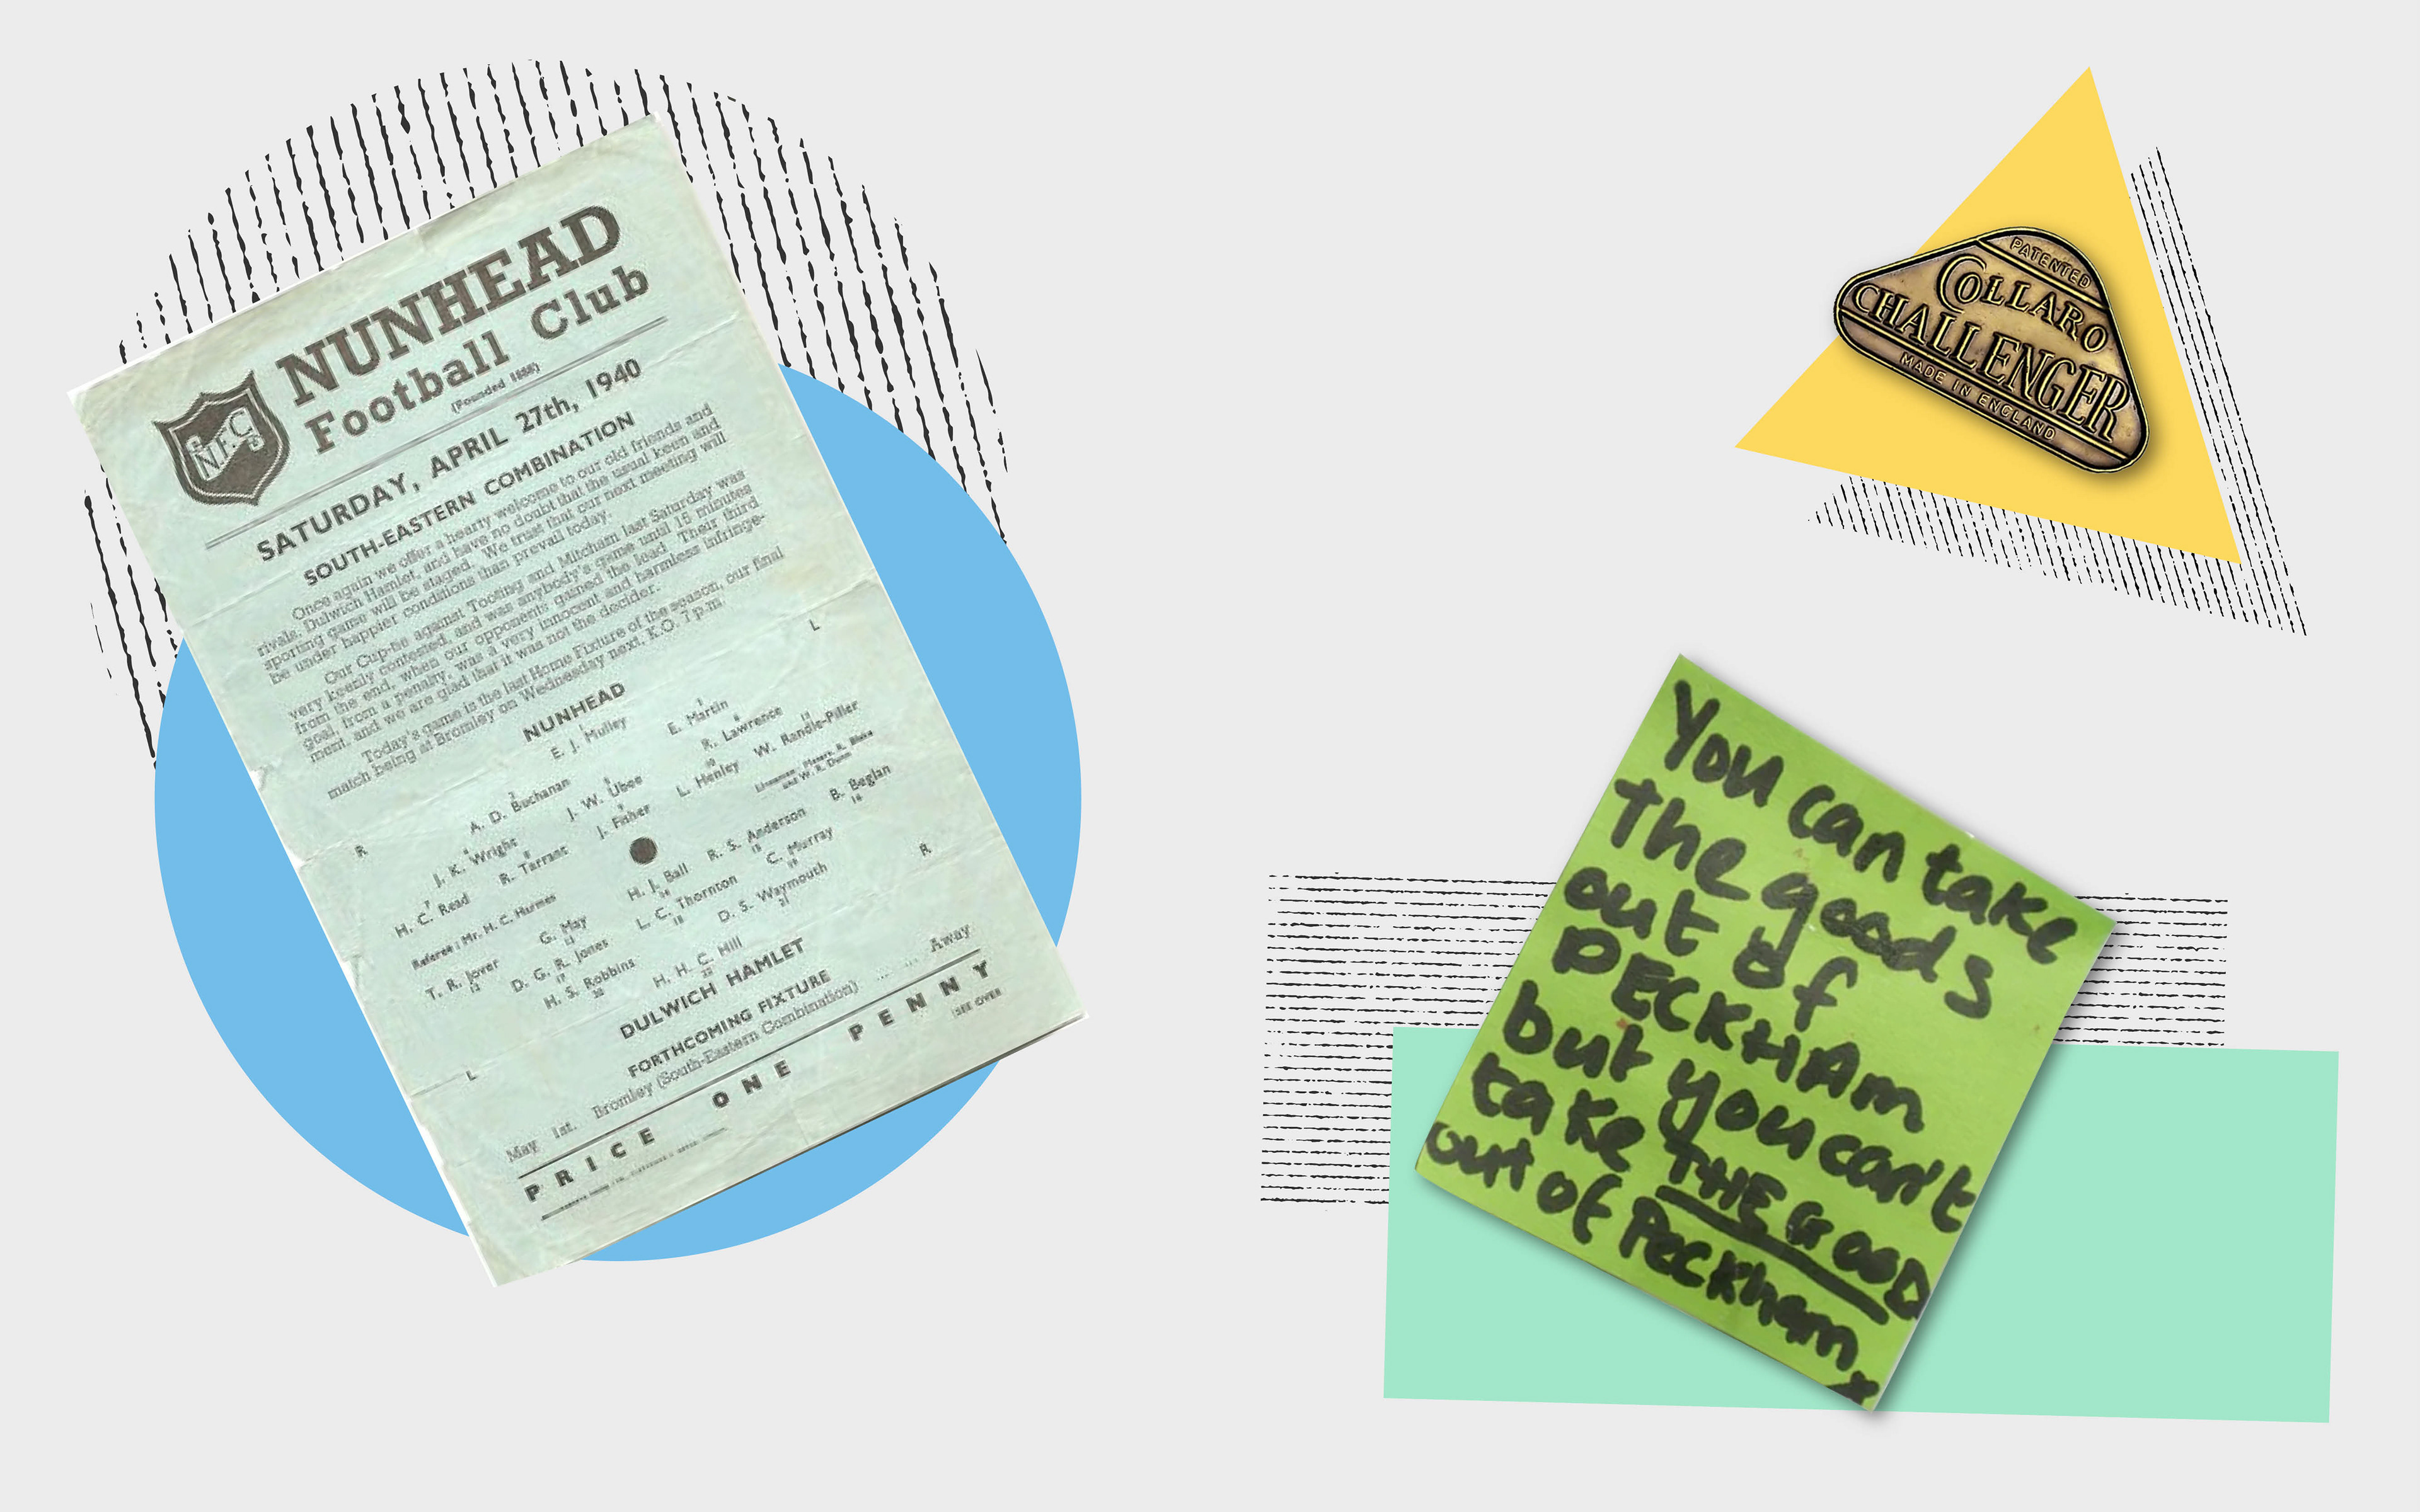 NUNHEAD
Football Club
(Founded 1888)
N.F.C
SATURDAY, APRIL 27th, 1940
SOUTH-EASTERN COMBINATION
Once again we offer a hearty welcome to our old friends and
rivals, Dulwich Hamlet, and have no doubt that the usual keen and
sporting game will be staged. We trust that our next meeting will
be under happier conditions than prevail today.
Our Cup-tie against Tooting and Mitcham last Saturday was
very keenly contested, and was anybody's game until 15 minutes
from the end, when our opponents gained the lead. Their third
goal, from a penalty, was a very innocent and harmless infringe-
ment, and we are glad that it was not the decider.
Today's game is the last Home Fixture of the season, our final
match being at Bromley on Wednesday next. K.O. 7 p.m.
NUNHEAD
1
E. J. Mulley
R L
2 3
A. D. Buchanan E. Martin
4 5 6
J. K. Wright J. W. Ubee R. Lawrence
7 8 9 10 11
H. C. Read R. Tarrant J. Fisher L. Henley W. Randle-Piller
Referee: Mr. H. C. Hurmes
Linesmen: Messrs. R. Blake
and W. R. Dunn
T. R. Jover G. May H. J. Ball R. S. Anderson B. Beglan
12 13 14 15 16
D. G. R. Jones L. C. Thornton C. Murray
17 18 19
H. S. Robbins D. S. Waymouth
20 21
L R
H. H. C. Hill
22
DULWICH HAMLET
FORTHCOMING FIXTURE
May 1st. Bromley (South-Eastern Combination) ... ... Away
PRICE ONE PENNY
(SEE OVER
PATENTED
COLLARO
CHALLENGER
MADE IN ENGLAND
You can take
the goods
out of
PECKHAm
but you can't
take THE GOOD
out of Peckham
x